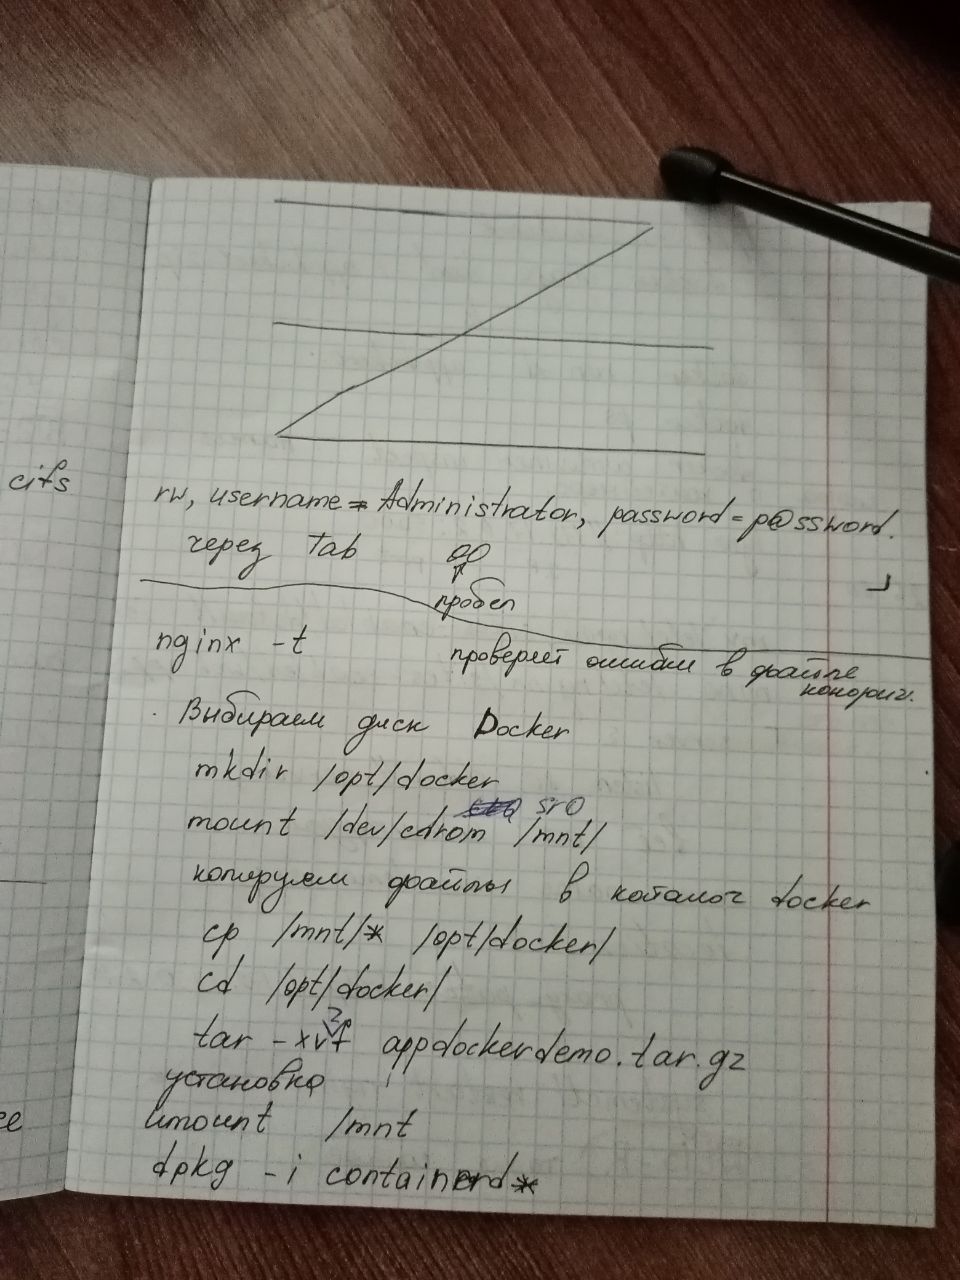 cifs
rw, username=Administrator, password=p@ssword.
через Tab 00
пробел
nginx -t проверяет ошибки в файле
конфиг.
Выбираем диск Docker
mkdir /opt/docker
sr0
mount /dev/cdrom /mnt/
копируем файлы в каталог docker
cp /mnt/* /opt/docker/
cd /opt/docker/
z
tar -xvf appdockerdemo.tar.gz
установка
umount /mnt
dpkg -i containerd*